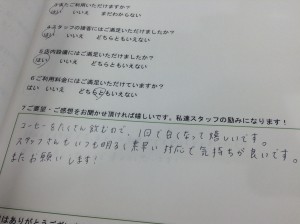 3またご利用いただけますか?
はい　いいえ　まだわからない
4スタッフの接客にはご満足いただけましたか?
はい　いいえ　どちらともいえない
5店内設備にはご満足いただけましたか?
はい　いいえ　どちらともいえない
6ご利用料金にはご満足いただけていますか?
はい　いいえ　どちらともいえない
7ご要望・ご感想をお聞かせ頂ければ嬉しいです。私達スタッフの励みになります!
コーヒーをたくさん飲むので、1回で白くなって嬉しいです。
スタッフさんもいつも明るく素早い対応で気持ちが良いです。
またお願いします!
はありがとうござい